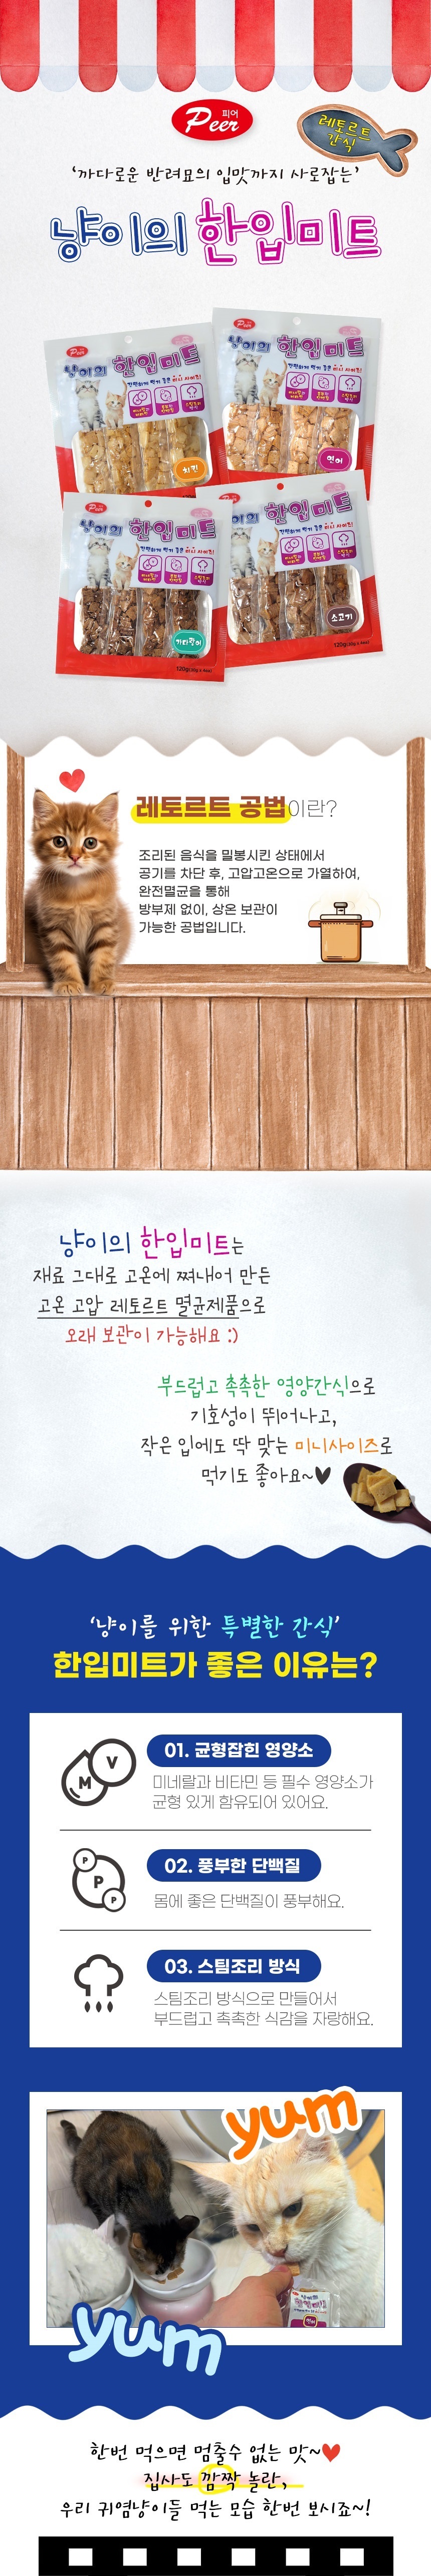 피어
Peer
레토르트
간식
‘까다로운 반려묘의 입맛까지 사로잡는’
냥이의 한입미트
냥이의 한입미트
치킨
냥이의 한입미트
연어
냥이의 한입미트
가다랑어
냥이의 한입미트
소고기
레토르트 공법이란?
조리된 음식을 밀봉시킨 상태에서
공기를 차단 후, 고압고온으로 가열하여,
완전멸균을 통해
방부제 없이, 상온 보관이
가능한 공법입니다.
냥이의 한입미트는
재료 그대로 고온에 쪄내어 만든
고온 고압 레토르트 멸균제품으로
오래 보관이 가능해요 :)
부드럽고 촉촉한 영양간식으로
기호성이 뛰어나고,
작은 입에도 딱 맞는 미니사이즈로
먹기도 좋아요~♥
‘냥이를 위한 특별한 간식’
한입미트가 좋은 이유는?
M V
01. 균형잡힌 영양소
미네랄과 비타민 등 필수 영양소가
균형 있게 함유되어 있어요.
P P P
02. 풍부한 단백질
몸에 좋은 단백질이 풍부해요.
03. 스팀조리 방식
스팀조리 방식으로 만들어서
부드럽고 촉촉한 식감을 자랑해요.
yum
yum
한번 먹으면 멈출수 없는 맛~♥
집사도 깜짝 놀란,
우리 귀염냥이들 먹는 모습 한번 보시죠~!